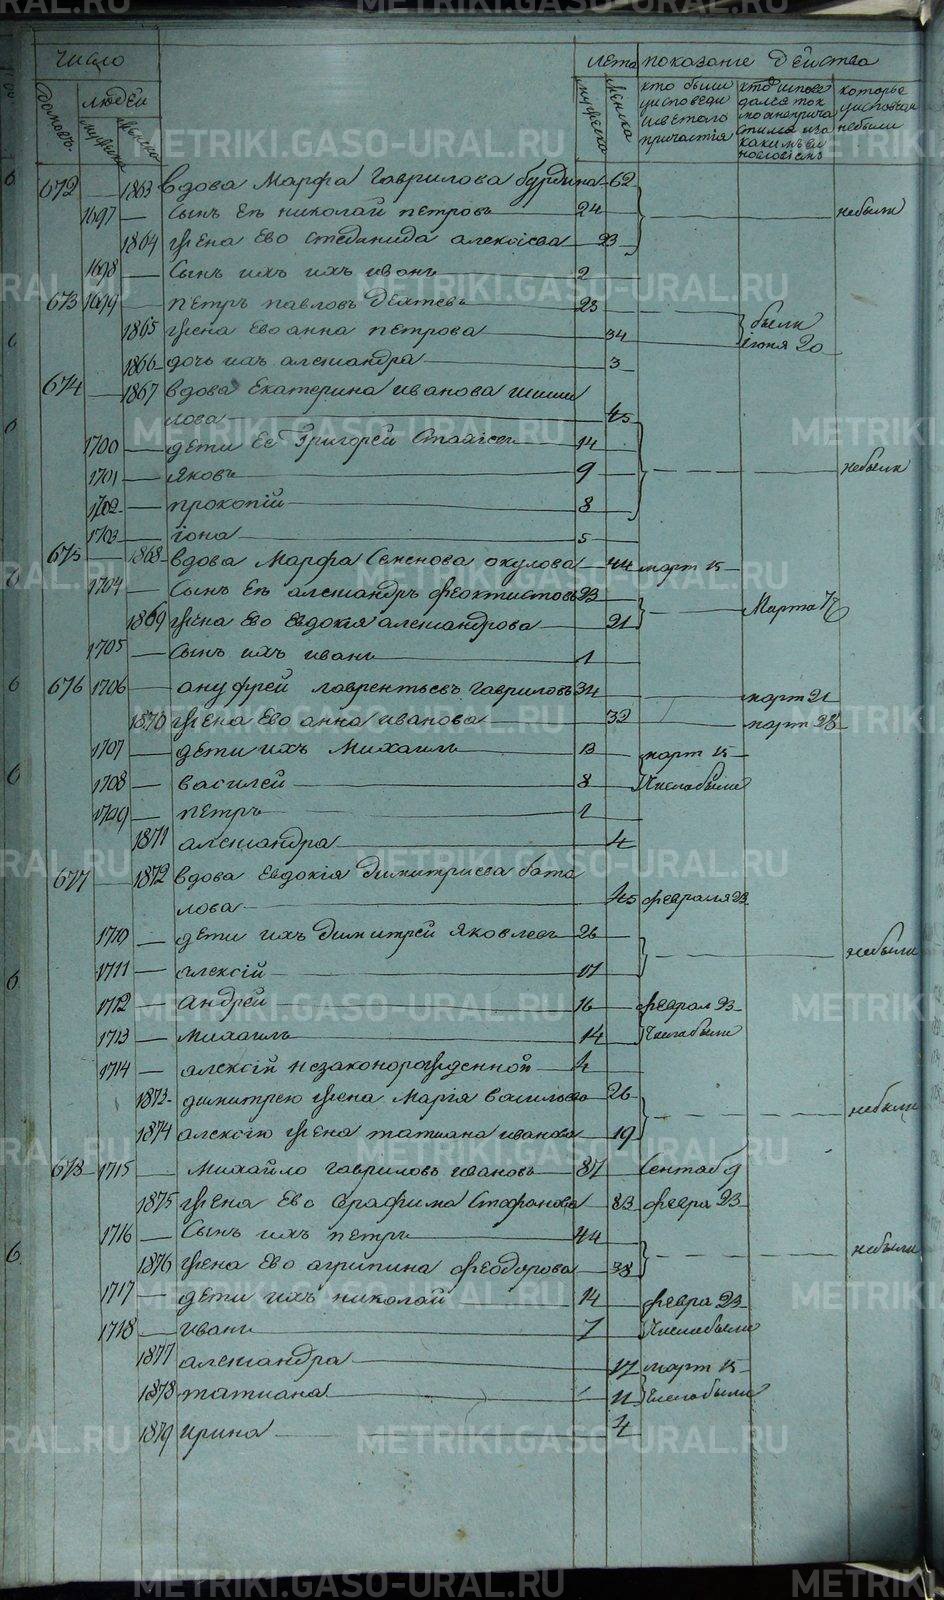 число лета показание действа
домовъ людей мужеска женска мужеска женска кто были исповеди и святого причастия
кто исповедался токмо а не причастился и за какимъ
которые исповеди не были
672 1863 вдова Марфа Гаврилова бурдина 62
1697 Сынъ Ея николай петровъ 24 небыли
1864 жена Ево Стефанида алексіева 23
1698 Сынъ ихъ ихъ иванъ 2
673 1699 петръ павловъ Дехтевъ 23
1865 жена Ево анна петрова 34 были іюня 20
1866 дочь ихъ александра 3
674 1867 вдова Екатерина иванова шиши
лова 45
1700 дети Ее Григорей 14
1701 Яковъ 9 небыли
1702 прокопій 8
1703 іона 5
675 1868 вдова Марфа Семенова окулова 44 март 15
1704 Сынъ Ея александръ феоктистовъ 23
1869 жена Ево Евдокія александрова 21 Марта
1705 Сынъ ихъ иванъ 1
676 1706 ануфрей лаврентьевъ гавриловъ 34 март 21
1870 жена Ево анна иванова 32 март 28
1707 дети ихъ Михаилъ 13 март 15
1708 василей 8 Числа были
1709 петръ 1
1871 александра 4
677 1872 вдова Евдокія Димитриева бата
лова 45 февраля 23
1710 дети ихъ Димитрей Яковлевъ 26
1711 алексій 17 небыли
1712 Андрей 16 феврал 23
1713 Михаилъ 14 Числа были
1714 алексій незаконорожденной 4
1873 димитрею жена Марія васильева 26
1874 алексію жена татиана иванова 19 небыли
678 1715 Михайло гавриловъ ивановъ 87 Сентяб 9
1875 жена Ево Серафима Стефанова 83 февра 23
1716 Сынъ ихъ петръ 44
1876 жена Ево агрипина феодорова 38 небыли
1717 дети ихъ николай 14 февра 23
1718 иванъ 7 Числа были
1877 александра 17 март 15
1878 татиана 11 Числа были
1879 ирина 4
METRIKI.GASO-URAL.RU